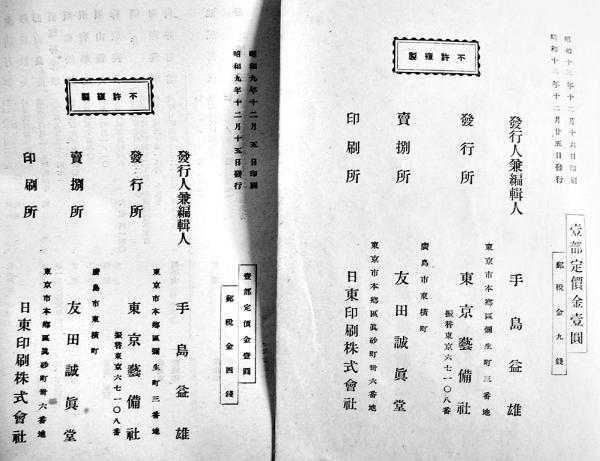 昭和十二年十二月十六日印刷
昭和十二年十二月廿五日發行
壹部定價金壹圓
郵税金九錢
不許複製
發行人兼編輯人 手島益雄
東京市本郷區彌生町三番地
發行所 東京藝備社
振替東京六七一〇八番
廣島市東横町
賣捌所 友田誠眞堂
東京市本郷區眞砂町卅六番地
印刷所 日東印刷株式會社
昭和九年十二月五日印刷
昭和九年十二月十五日發行
壹部定價金壹圓
郵税金四錢
不許複製
發行人兼編輯人 手島益雄
東京市本郷區彌生町三番地
發行所 東京藝備社
振替東京六七一〇八番
廣島市東横町
賣捌所 友田誠眞堂
東京市本郷區眞砂町卅六番地
印刷所 日東印刷株式會社